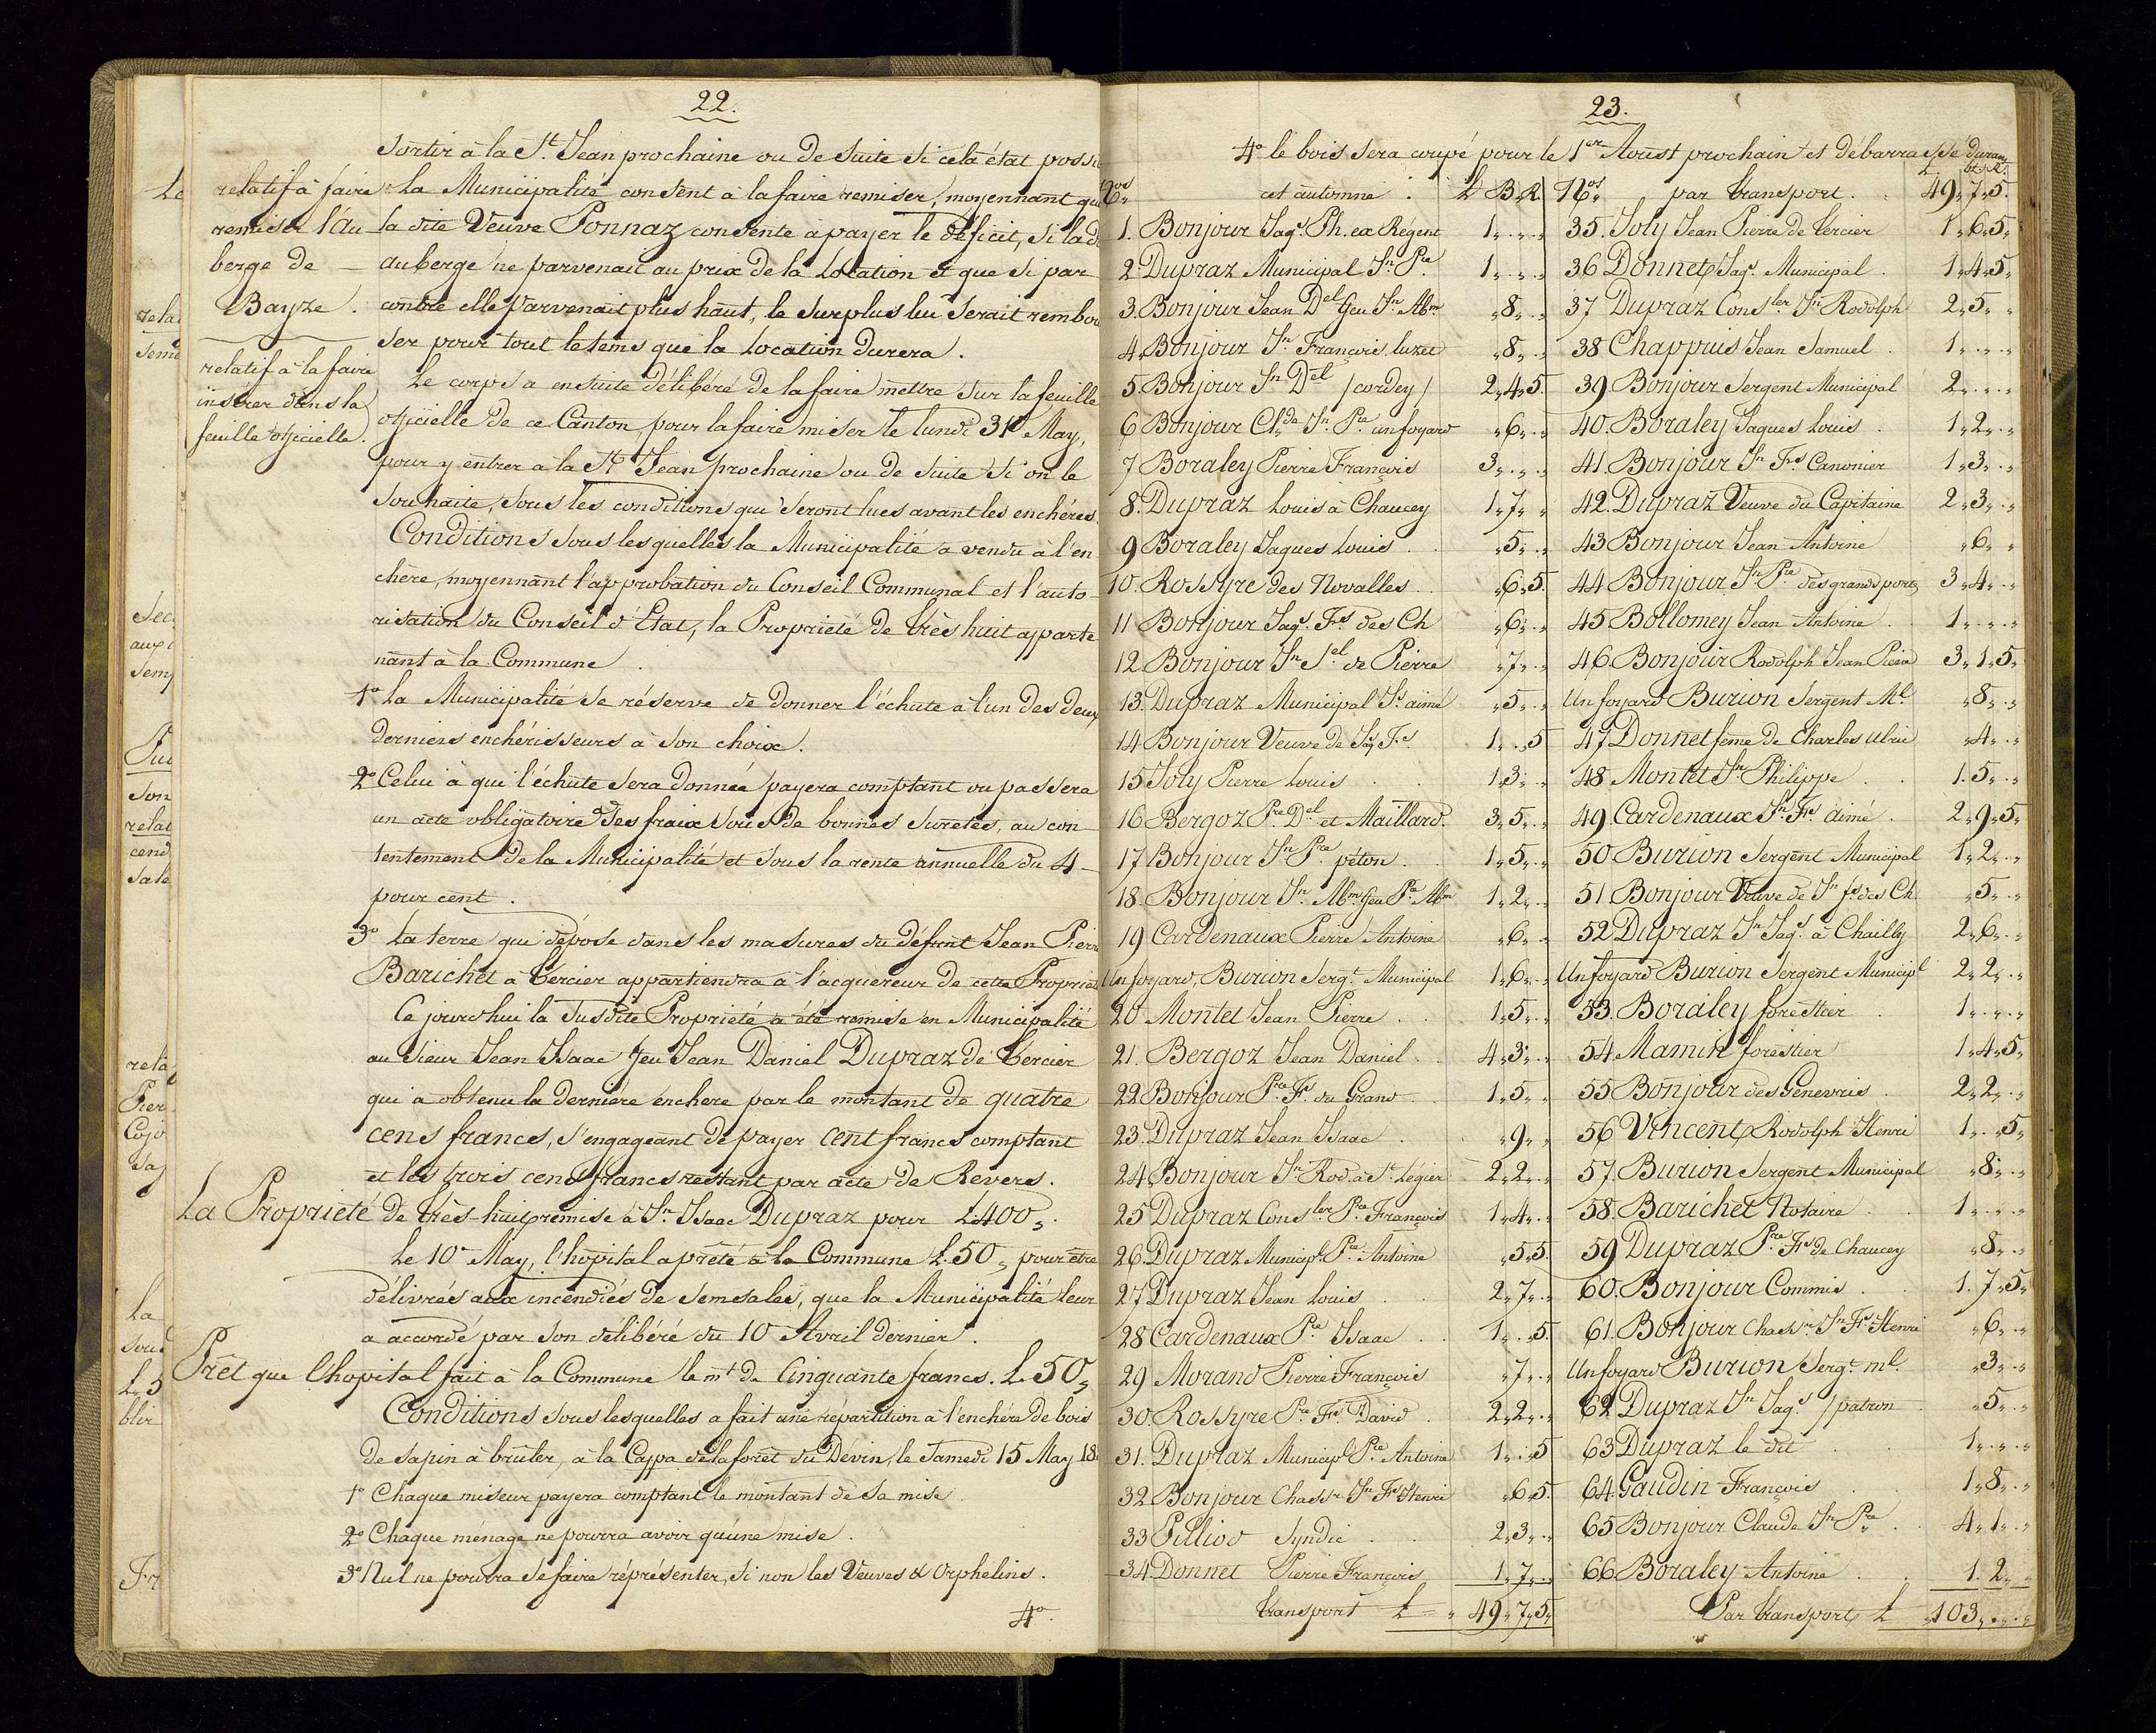 22.
sortir à la St. Jean prochaine ou de suite si cela était possi
relatif à faire
remiser l'au
berge de
Bayze.
La Municipalité consent à la faire remiser, moyennant qu
la dite Veuve Ponnaz consente à payer le déficit, si la d
auberge ne parvenait au prix de la Location et que si par
contre elle parvenait plus haut, le surplus lui serait rembou
ser pour tout le tems que la Location durera.
relatif à la faire
insérer dans la
feuille officielle.
Le corps a ensuite délibéré de la faire mettre sur la feuille
officielle de ce Canton, pour la faire miser le lundi 31e May,
pour y entrer à la St. Jean prochaine ou de suite si on le
souhaite, sous les conditions qui seront lues avant les enchéres.
Conditions sous lesquelles la Municipalité a vendu à l'en
chère, moyennant l'approbation du Conseil Communal et l'auto-
risation du Conseil d'État, la Propriété de très huit apparte
nant à la Commune.
1o La Municipalité se réserve de donner l'échute à l'un des deux
derniers enchérisseurs à son choix.
2o Celui à qui l'échute sera donnée payera comptant ou passera
un acte obligatoire à ses fraix sous de bonnes suretés, au con-
tentement de la Municipalité et sous la rente annuelle du 4
pour cent.
3o La terre qui dépose dans les masures du défunt Jean Pierre
Barichet à Tercier appartiendra à l'acquereur de cette Propriét
Ce jourd'hui la susdite Propriété a été remise en Municipalité
au sieur Jean Isaac feu Jean Daniel Dupraz de Tercier
qui a obtenu la derniére enchere par le montant de quatre
cens francs, s'engageant de payer cent francs comptant
et les trois cens francs restant par acte de Revers.
La Propriété de très-huit remise à Sr. Isaac Dupraz pour L. 400„.
Le 10e May, l'hopital a prêté à la Commune L. 50„ pour être
délivrés aux incendiés de Semsales, que la Municipalité leur
a accordé par son délibéré du 10e Avril dernier.
Prêt que l'hopital fait à la Commune le mt. de Cinquante francs. L. 50„
Conditions sous lesquelles a fait une répartition à l'enchére de bois
de sapin à brûler, à la Cappa de la forêt du Dévin, le Samedi 15 May 18
1o Chaque miseur payera comptant le montant de sa mise.
2o Chaque ménage ne pourra avoir qu'une mise.
3o Nul ne pourra se faire répresenter, si non les Veuves & Orphelins.
4o.
23.
4o le bois sera coupé pour le 1er Aoust prochain et débarrassé duran
cet automne.
Nos L. B. R.
1. Bonjour Jaqs. Ph. ex Régent 1„.„.„
2. Dupraz Municipal Jn. Pre. 1„.„.„
3. Bonjour Jean Del. feu Jn. Abm. „8„.„
4. Bonjour Jn. François luzet „8„.„
5. Bonjour Jn. Del. /cordey/ 2„4„5.
6 Bonjour Clde. Jn. Pre. un foyard „6„.„
7 Boraley Pierre François 3„.„.„
8. Dupraz Louis à Chaucey 1„7„.„
9 Boraley Jaques Louis „5„.„
10. Rossyre des Novalles „6„5.
11 Bonjour Jaqs. Fs. des Ch „6„.„
12 Bonjour Jn. Sel. de Pierre „7„.„
13. Dupraz Municipal Js. aimé „5„.„
14 Bonjour Veuve de Jaq. Fs. 1„.„5
15 Joly Pierre Louis 1„3„.„
16 Bergoz Pre. Del. et Maillard. 3„5„.„
17 Bonjour Jn. Pre. péton 1„5„.„
18. Bonjour Jn. Abm. feu Pre. Abm 1„2„.„
19 Cardenaux Pierre Antoine „6„.„
Un foyard, Burion Sergt. Municipal 1„6„.„
20 Montet Jean Pierre 1„5„.„
21. Bergoz Jean Daniel 4„3„.„
22 Bonjour Pre. Fs. du Grand 1„5„.„
23. Dupraz Jean Isaac „9„.„
24 Bonjour Jn. Rod. à St. Légier 2„2„.„
25 Dupraz Consler. Pre. François 1„4„.„
26. Dupraz Municipl. Pre. Antoine „5„5.
27 Dupraz Jean Louis 2„7„.„
28 Cardenaux Pre. Isaac 1„.„5.
29 Morand Pierre François „7„.„
30. Rossyre Pre. Fs. David 2„2„.„
31. Dupraz Municipl. Pre. Antoine 1„.„5
32 Bonjour Chassr. Jn. Fs. Henri „6„5.
33 Pilliod Syndic 2„3„.„
34. Donnet Pierre François 1„7„.„
transport L. 49„7„5„
L. bz. R.
Nos par transport. 49„7„5.
35. Joly Jean Pierre de Tercier 1„6„5„
36 Donnet Jaqs. Municipal 1„4„5„
37 Dupraz Consler. Jn. Rodolph 2„5„.„
38 Chappuis Jean Samuel 1„.„.„
39 Bonjour Sergent Municipal 2„.„.„
40. Boraley Jaques Louis 1„2„.„
41. Bonjour Jn. Fs. Canonier 1„3„.„
42. Dupraz Veuve du Capitaine 2„3„.„
43 Bonjour Jean Antoine „6„.„
44 Bonjour Jn. Pre. des grands ports 3„4„.„
45 Bollomey Jean Antoine 1„.„.„
46. Bonjour Rodolph Jean Pierre 3„1„5„
Un foyard Burion Sergent Ml. „8„.„
47 Donnet feme de Charles Ulric „4„.„
48 Montet Jn. Philippe 1„5„.„
49 Cardenaux Jn. Fs. aimé 2„9„5„
50 Burion Sergent Municipal 1„2„.„
51 Bonjour Veuve de Jn. fs. des Ch. „5„.„
52 Dupraz Jn. Jaqs. à Chailly 2„6„.„
Un foyard Burion Sergent Municipl 2„2„.„
53. Boraley forestier 1„.„.„
54. Mamin forestier 1„4„5„
55 Bonjour des Genevris 2„2„.„
56 Vincent Rodolph Henri 1„.„5„
57. Burion Sergent Municipal „8„.„
58. Barichet Notaire 1„.„.„
59 Dupraz Pre. Fs. de Chaucey „8„.„
60. Bonjour Commis 1„7„5„
61. Bonjour Chassr. Jn. Fs. Henri „6„.„
Un foyard Burion Sergt. ml. „3„.„
62 Dupraz Jn. Jaqs. /patron „5„.„
63 Dupraz le dit 1„.„.„
64. Gaudin François 1„8„.„
65 Bonjour Claude Jn. Pre. 4„1„.„
66 Boraley Antoine 1„2„.„
Par transport L. 103„.„.„